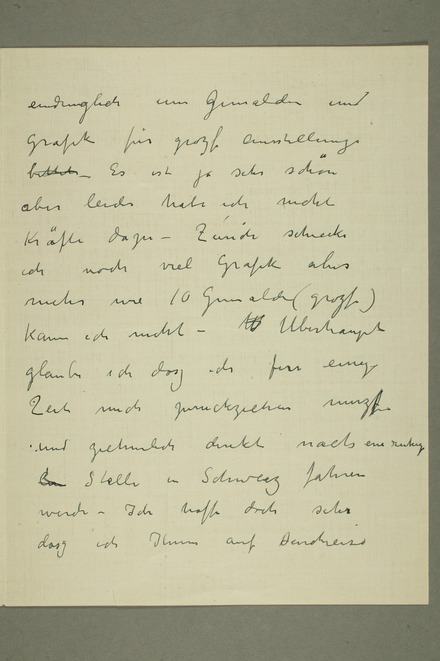 eindringlich um Gemälden und
Grafik für grozse Ausstellungs
bittet – Es ist ja sehr schön
aber leider habe ich nicht
Kräfte dazu – Zürich schicke
ich noch viel Grafik aber
mehr wie 10 Gemälde (grozse)
kann ich nicht – Überhaupt
glaube ich dasz ich für einige
Zeit mich zurückziehen musz
und ziemlich direkt nach eine ruhige
Stelle in Schweiz fahren
werde – Ich hoffe doch sehr
dasz ich Ihnen auf